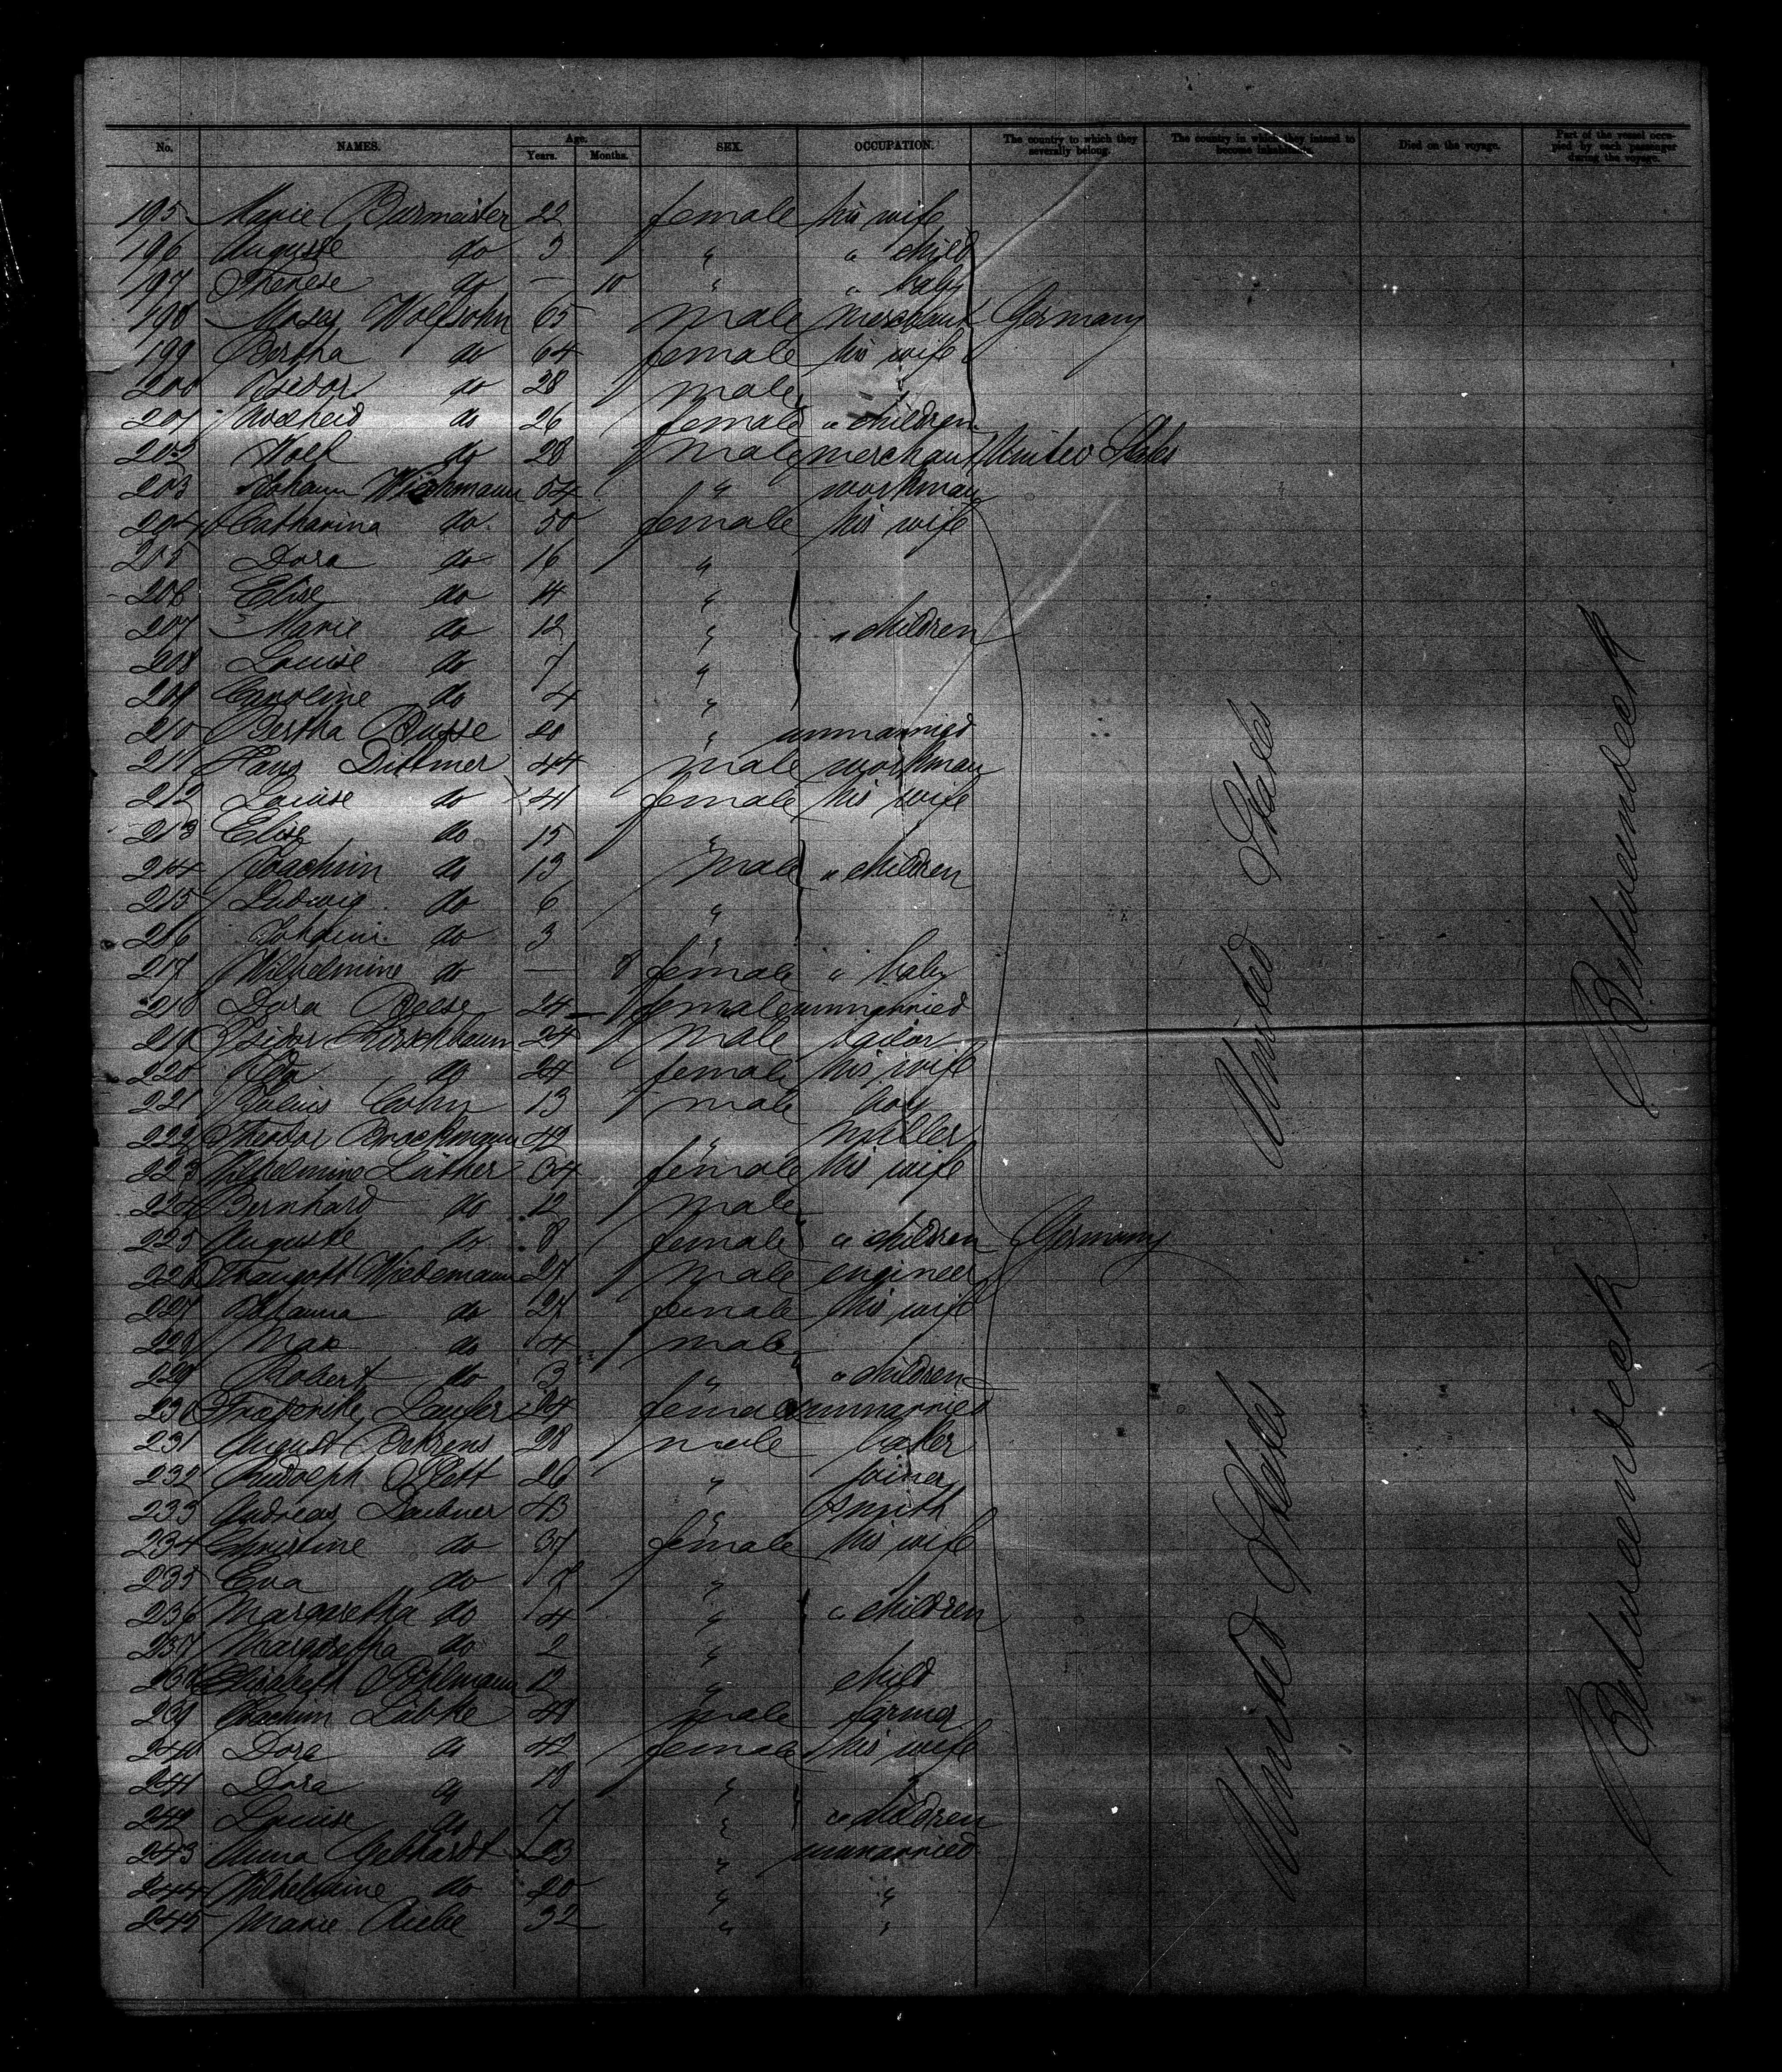 No. NAMES. Age. Years. Months. SEX. OCCUPATION. The country to which they severally belong. The country in which they intend to become inhabitants. Died on the voyage. Part of the vessel occupied by each passenger during the voyage.
195 Marie Burmeister 22 female his wife
196 Auguste do 3 " " child
197 Therese do — 10 " " baby
198 Moses Wolfsohn 65 male merchant Germany
199 Bertha do 64 female his wife
200 Isidor do 28 male
201 do 26 female " children
202 Wolf do 28 male merchant United States
203 Johann Wichmann 54 " workman
204 Catharina do. 50 female his wife
205 Dora do 16 "
206 Elise do 14 "
207 Marie do 12 " " children
208 Louise do 7 "
209 Caroline do 4 "
210 Bertha Busse 20 " unmarried
211 Hans Dittmer 44 male workman
212 Louise do 41 female his wife
213 Elise do 15 "
214 Joachim do 13 male " children
215 Ludwig do 6 "
216 do 3 "
217 Wilhelmine do — 8 female " baby
218 Dora Beese 24 female unmarried
219 Isidor Hirschbaum 24 male tailor
220 do 24 female his wife
221 Julius Cohn 13 male boy
222 Theodor Brockmann 42 " miller
223 Wilhelmine Lüther 34 female his wife
224 Bernhard do 12 male
225 Auguste do 8 female " children Germany
226 Traugott Wiedemann 27 male engineer
227 Johanna do 27 female his wife
228 Max do 4 male
229 Robert do 3 " " children
230 Frederike Laufer 24 female unmarried
231 August Behrens 28 male baker
232 Rudolph Plett 26 " joiner
233 Andreas Daebner 43 " smith
234 Christine do 37 female his wife
235 Eva do "
236 Margaretha do 4 " " children
237 Margaretha do 2 "
238 Elisabeth Pöhlmann 12 " child
239 Joachim Lübke 48 male farmer
240 Dora do 42 female his wife
241 Dora do 18 "
242 Louise do 7 " " children
243 Anna Gebhardt 23 " unmarried
244 Wilhelmine do 20 " "
245 Marie 32 " "
United States
Betweendeck
United States
Betweendeck